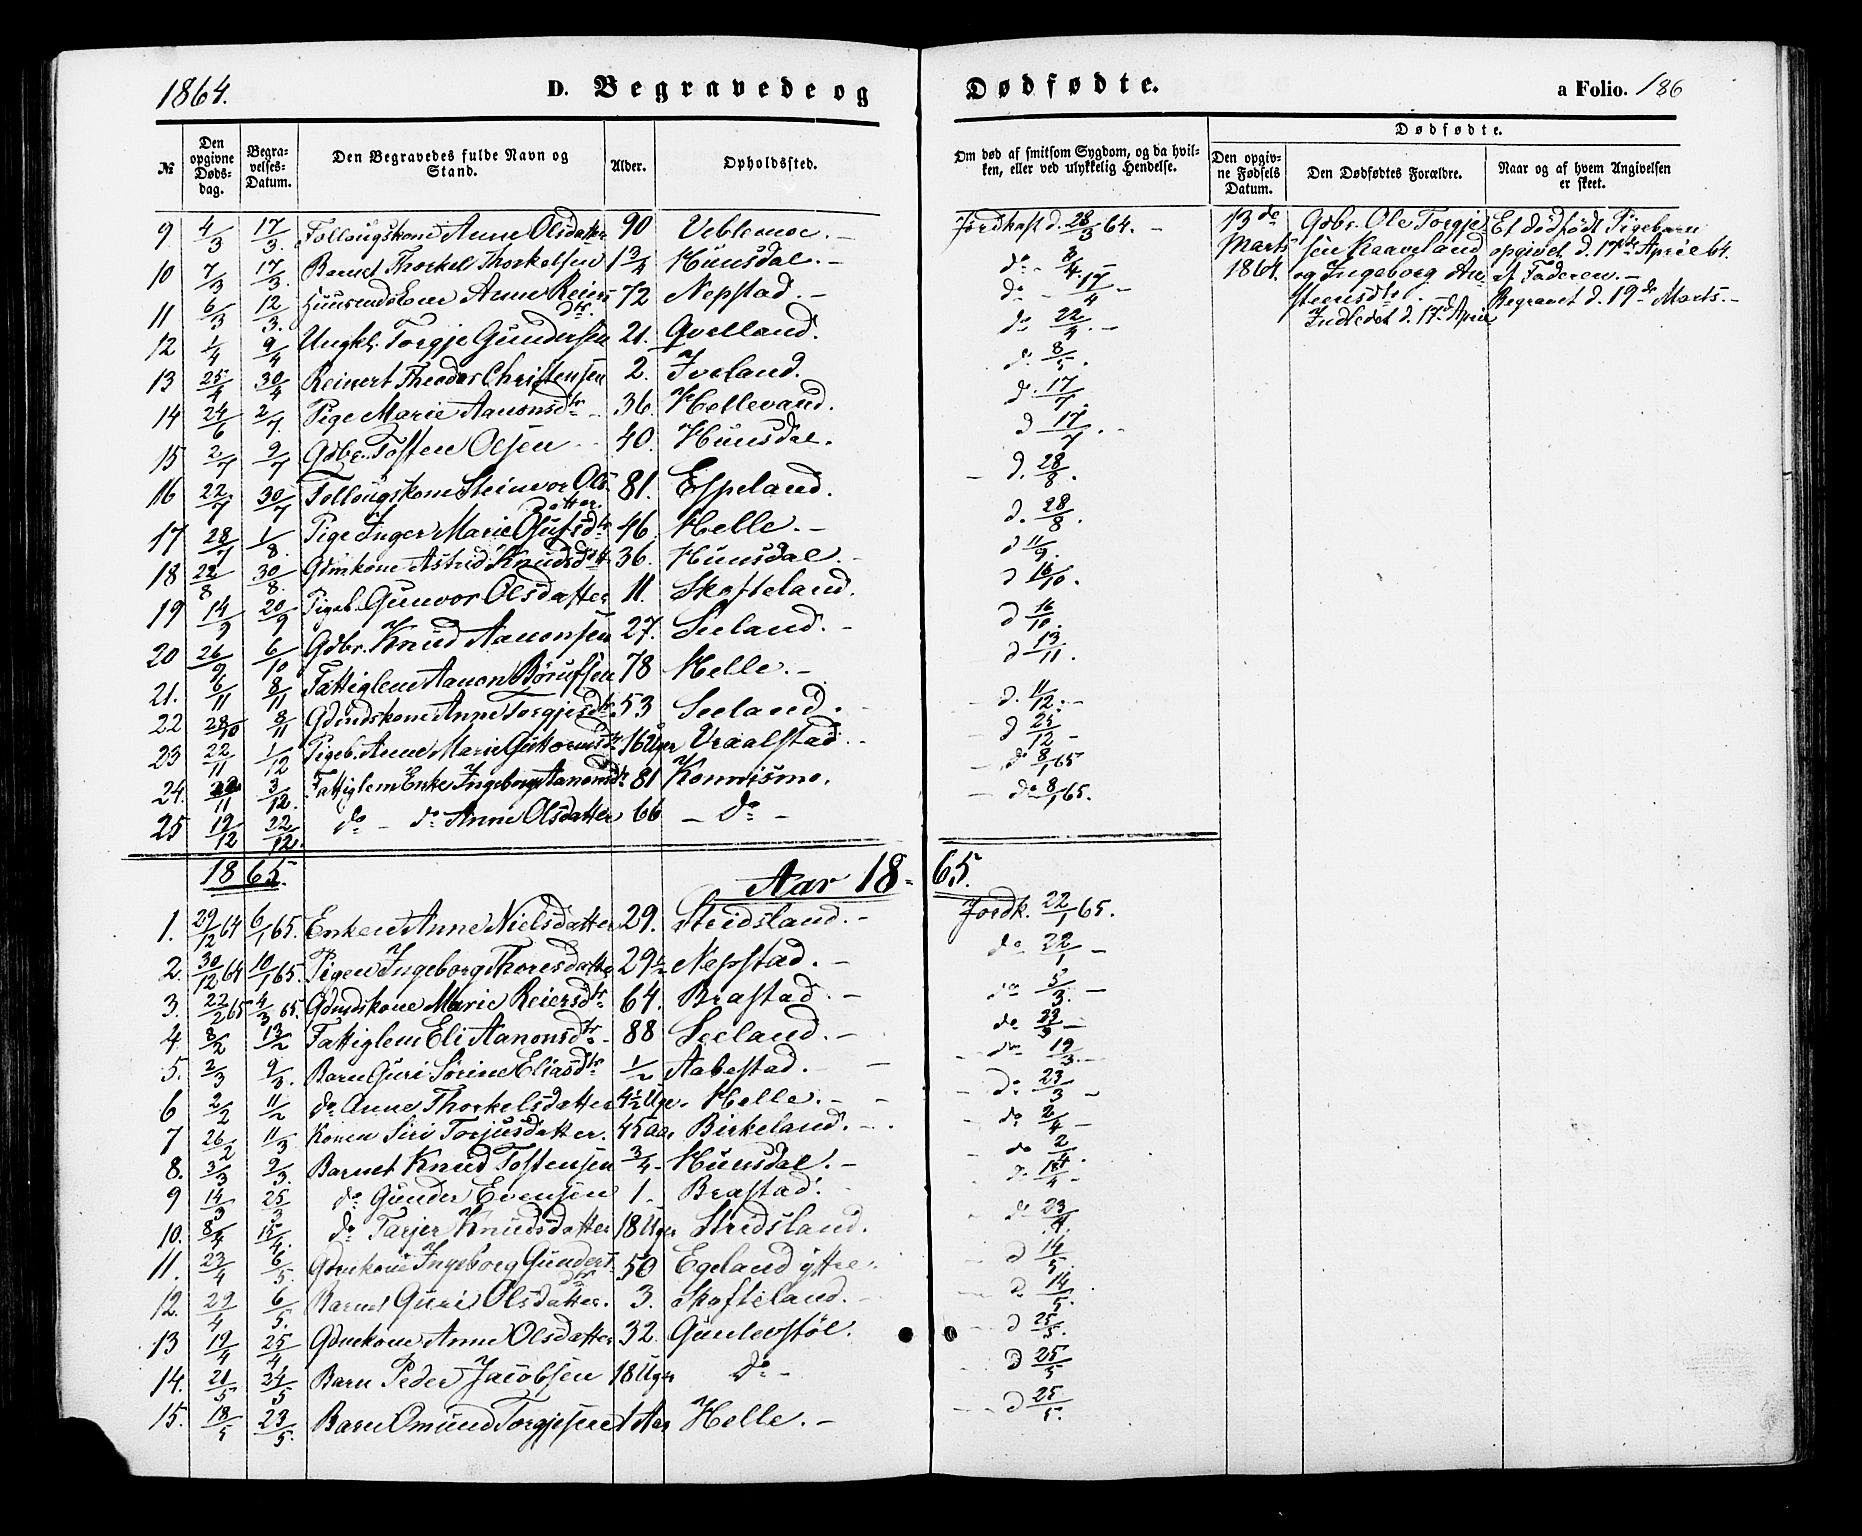 1864. D. Begravede og Dødfødte. a Folio. 186
№ Den opgivne Dødsdag. Begravelses-Datum. Den Begravedes fulde Navn og Stand. Alder. Opholdssted. Om død af smitsom Sygdom, og da hvilken, eller ved ulykkelig Hendelse. Dødfødte. Den opgivne Fødsels Datum. Den Dødfødtes Forældre. Naar og af hvem Angivelsen er skeet.
9 4/3 17/3. Follaugskone Anne Olsdatter 90 Veblemoe. - Jordkast d. 28/3 64. -
10 7/3 17/3. Barnet Thorkel Thorkelsen 1 3/4 Hünsdal. - do - 8/4.
11 6/3 12/3. Huusmdsknr Anne Reiersdtr. 72 Nepstad. - do - 17/4 -
12 1/4 9/4 Ungkl. Torgje Gundersen 21. Qvelland. do 22/4. -
13 25/4 30/4 Reinert Theodor Christensen 2. Iveland. d. 8/5.
14 24/6 2/7. Pige Marie Aanonsdtr - 36. Hellevand. d. 17/7.
15 2/7 9/7 Gdbr. Tosten Olsen - 40. Hünsdal. d 17/7. -
16 22/7 30/7 Follaugskone Steinvor Olsdatter. 81. Espeland. - d. 28/8.
17 28/7 1/8. Pige Inger Marie Olufsdtr 46. Helle. - d. 28/8.
18 22/8 30/8. Gdmkone Astrid Knudsdtr 36. Hünsdal. - d 11/9.
19 14/9 20/9 Pigeb. Gunvor Olsdatter 11. Skofteland. d 16/10.
20 26/9 6/10 Gdbr. Knud Aanonsen 27. Seeland. - d 16/10.
21. 6/11 8/11 Fattiglem Aanon Börufsen 78 Helle. - d 13/11.
22 28/10 8/11 Gdmdskone Anne Torgjesdtr. 53 Seeland. - d. 11/12. -
23 22/11 1/12 Pigeb. Anne Marie Guttormsdtr 16 Uger Vraalstad. - d 25/12 -
24. 22/11 3/12. Fattiglem Enke Ingeborg Aanonsdtr 81 Konnismo. - do 8/1 65
25 19/12 22/12. do - do Anne Olsdatter 66 - do - - do 8/1 65.
1865. Aar 18-65.
1. 29/12 64 6/1 65. Enken Anne Nielsdatter 29. Steidsland. - Jordk. 22/1 65.
2. 30/12 64 10/1 65. Pigen Ingeborg Thoresdatter 29 1/2 Nepstad. - do 22/1 -
3. 22/2 65 4/3 65. Gdmdskone Marie Reiersdtr 64. Brastad. - do 5/3. -
4. 8/2 13/2 Fattiglem Eli Aanonsdtr - 88 Seeland. - do 23/3 -
5. 2/3 9/3. Barn Guri Sörine Eliasdtr 1/2 Aabestad. - do 19/3. -
6 2/2 11/2 do Anne Thorkelsdatter 4 1/2 Uge. Helle. - - do 23/3 -
7 26/2 11/3. Konen Siri Torjusdatter. 45 Aar Birkeland. - do 2/4 -
8. 3/3 9/3. Barnet Knud Tostensen 3/4 - Hünsdal. - - do 2/4.
9 14/3 25/3 do Gunder Evensen 1. Brastad. d. 17/4 -
10. 8/4 15/4. do Tarjer Knudsdatter 18 Uger Stridsland. - do 23/4.
11. 23/4 6/5. Gdmkone Ingeborg Gundersdtr 50 Egeland ytre. - d 14/5.
12. 29/4 6/5. Barnet Guri Olsdatter. 3. Skofteland. - d. 14/5.
13 19/4 25/4 Gdmkone Anne Olsdatter 32. Gunlevstöl. - d 25/5.
14. 21/5 24/5 Barn Peder Jacobsen 18 Uger do - - d 25/5
15. 18/5 23/5. Barn Omund Torgjesen 1 Aar Helle. - - d 25/5.
13de Marts 1864.
Gdbr. Ole Torgjesen Haaveland og Ingeborg Ansteensdtr.
Indledet d. 17de April
Et dödfödt Pigebarn
opgivet d. 17de April 64.
af Faderen. -
Begravet d. 19de Marts. -